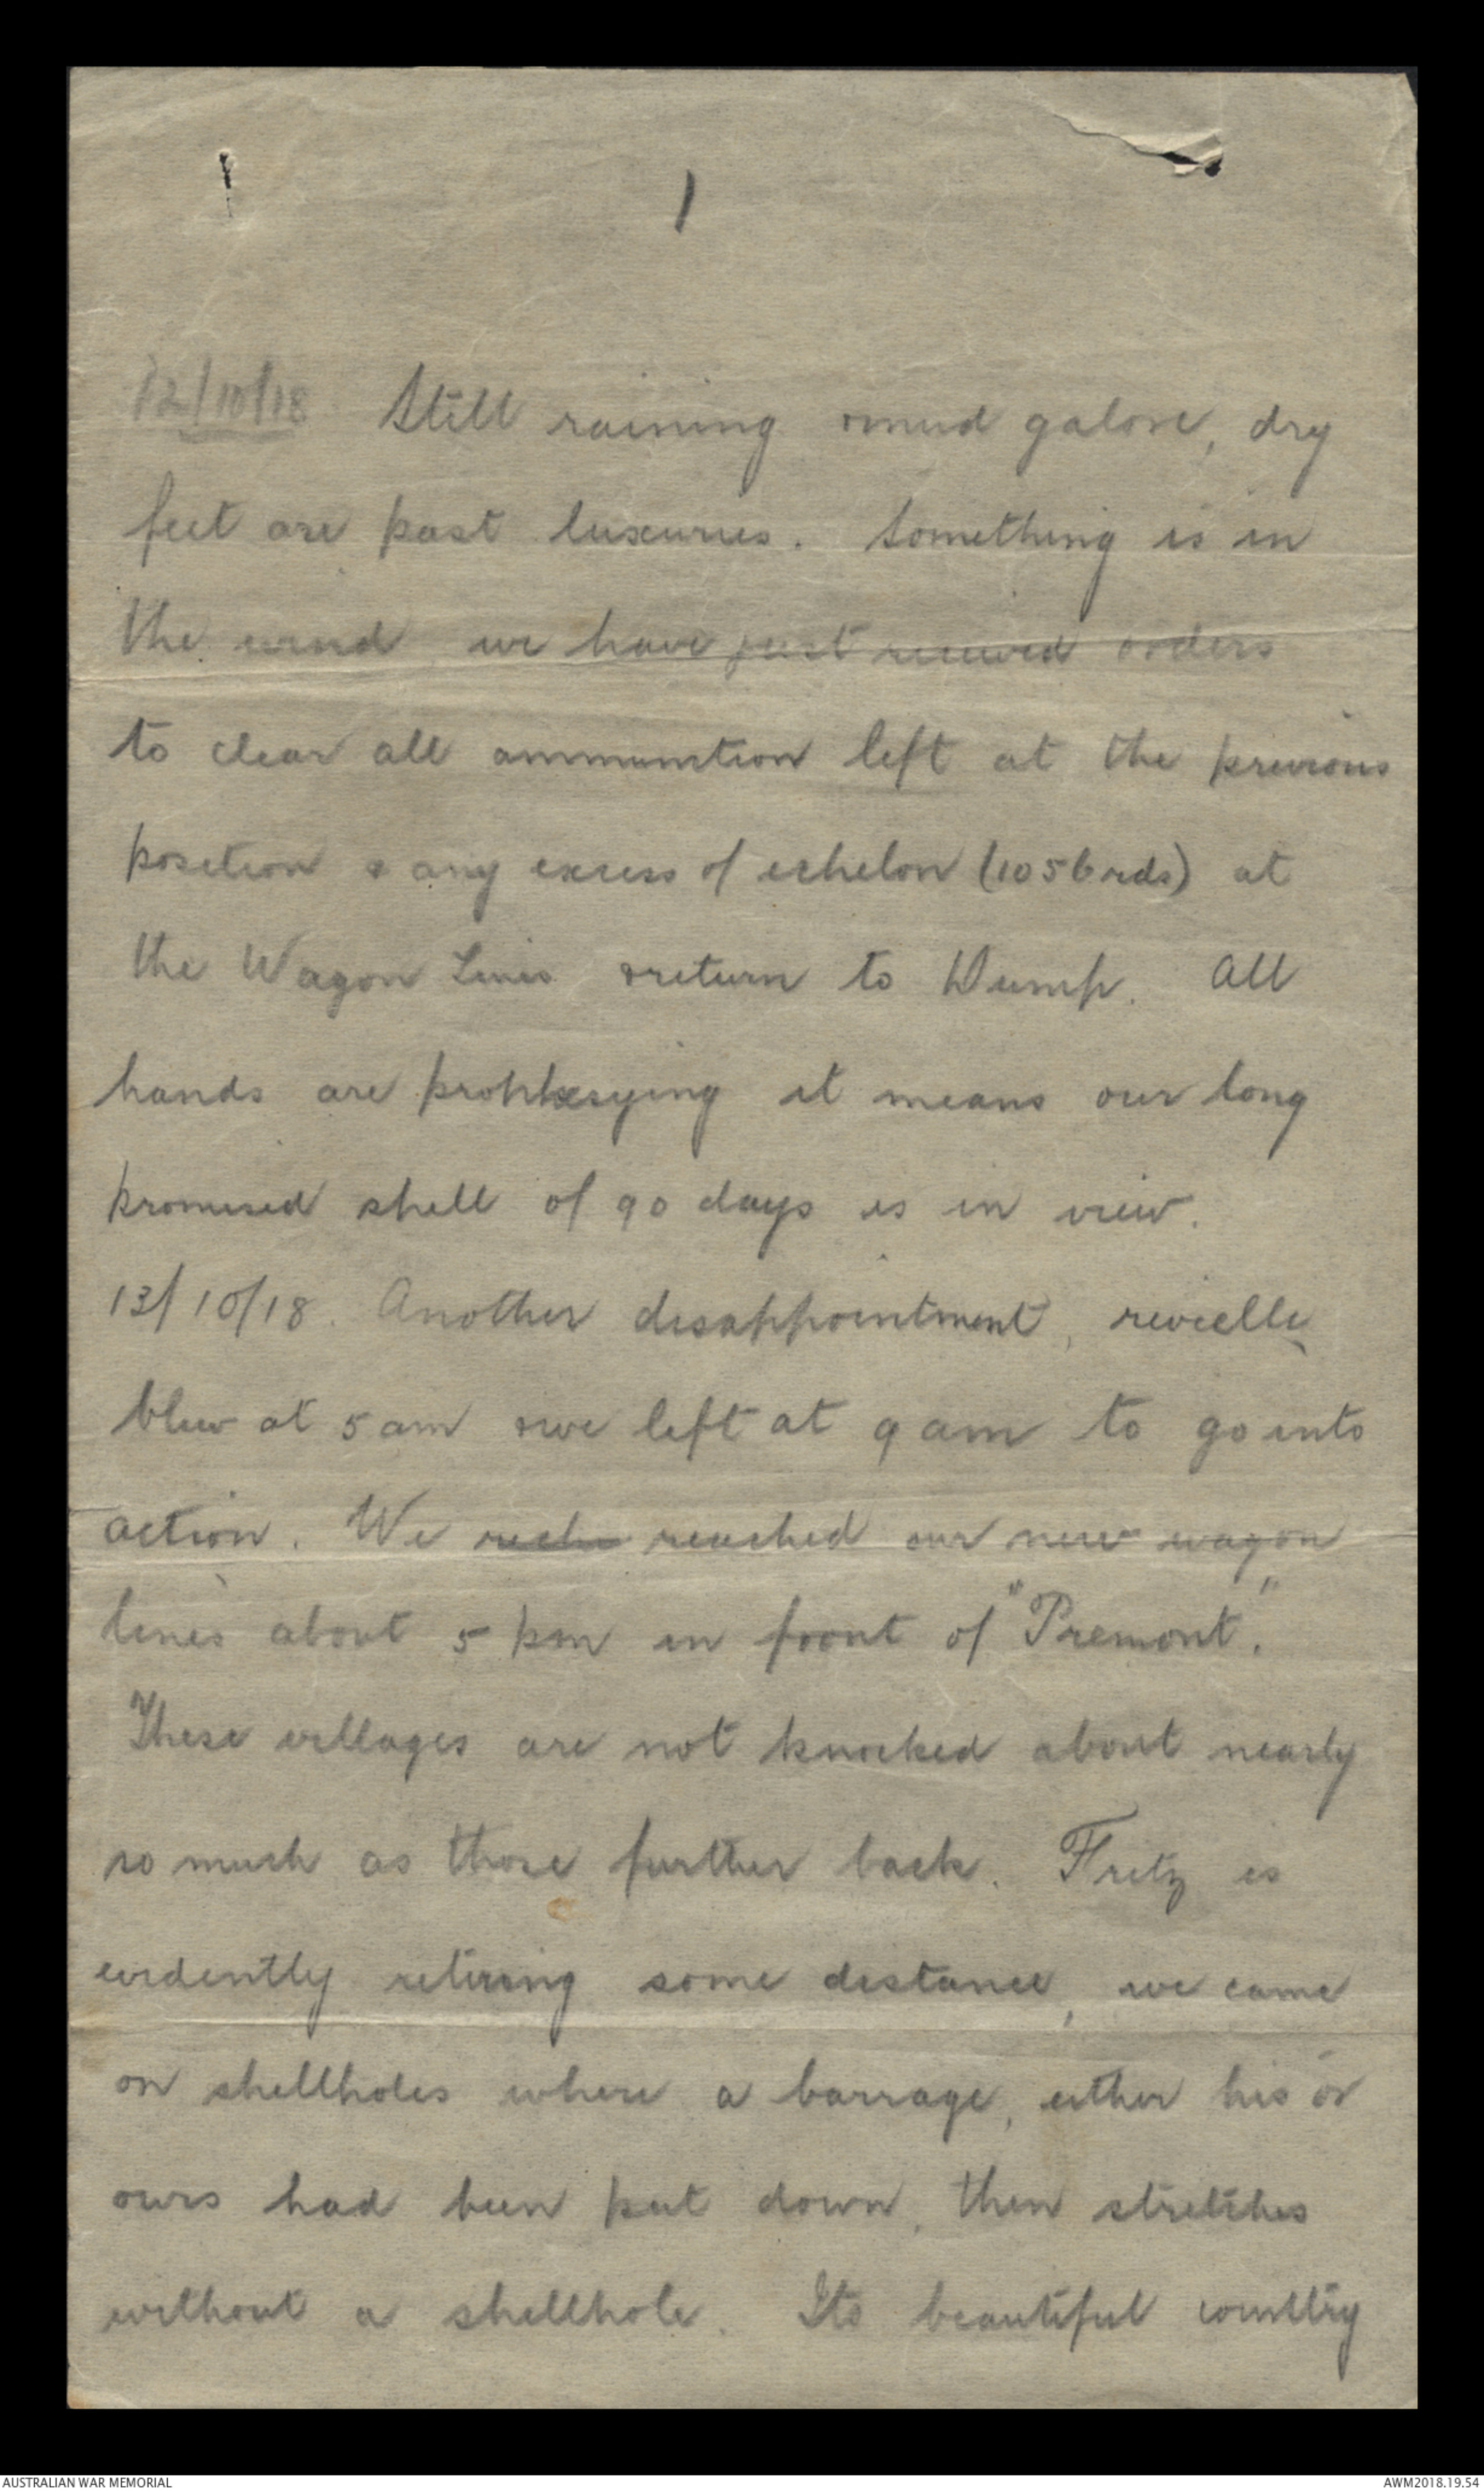 1
12/10/18 Still raining & mud galore, dry
feet are past luxuries. Something is in
the wind, we have just received orders
to clear all ammunition left at the previous
position & any excess of echelon (1056 rds) at
the Wagon Lines & return to Dump. All
hands are prophesying it means our long
promised shell of 90 days is in view.
13/10/18. Another disappointment, reveille
blew at 5 am & we left at 9 am to go into
action. We reche reached our new wagon
lines about 5 pm in front of "Premont".
These villages are not knocked about nearly
so much as those further back. Fritz is
evidently retiring some distance, we came
on shellholes where a barrage, either his or
ours had been put down, then stretches
without a shellhole. Its beautiful country
AUSTRALIAN WAR MEMORIAL
AWM2018.19.54